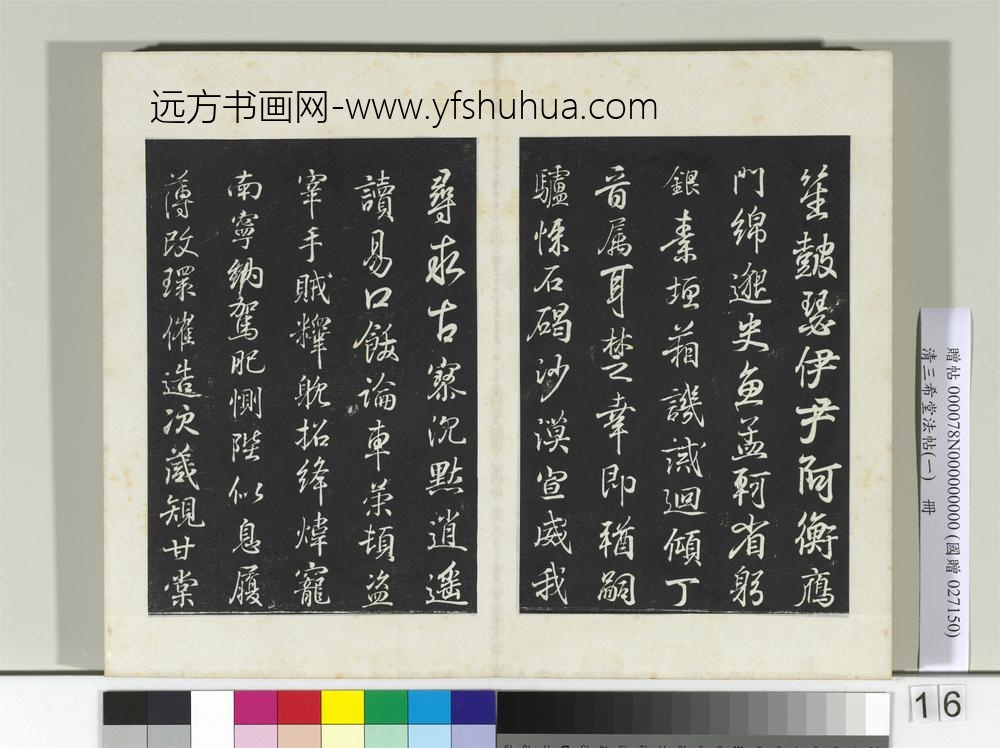 远方书画网-www.yfshuhua.com
笙鼓瑟伊尹阿衡雁
門綿邈史魚孟軻省躬
銀素垣箱譏誡迴傾丁
音属耳楚幸即猶嗣
驢騾石碣沙漠宣威我
尋求古寮沉默逍遥
讀易口飯論車策頓盗
宰手賊釋躭招絳煒寵
南寧納駕肥惻陛似息履
薄改環催造次薉規甘棠
贈帖 000078N000000000 (國贈 027150)
清三希堂法帖(一) 冊
16